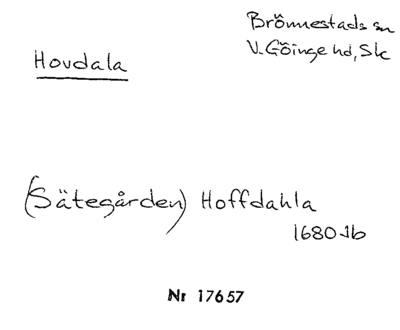 Brönnestads sn
V. Göinge hd, Sk
Hovdala
(Sätegården) Hoffdahla
1680 Jb
Nr 17657